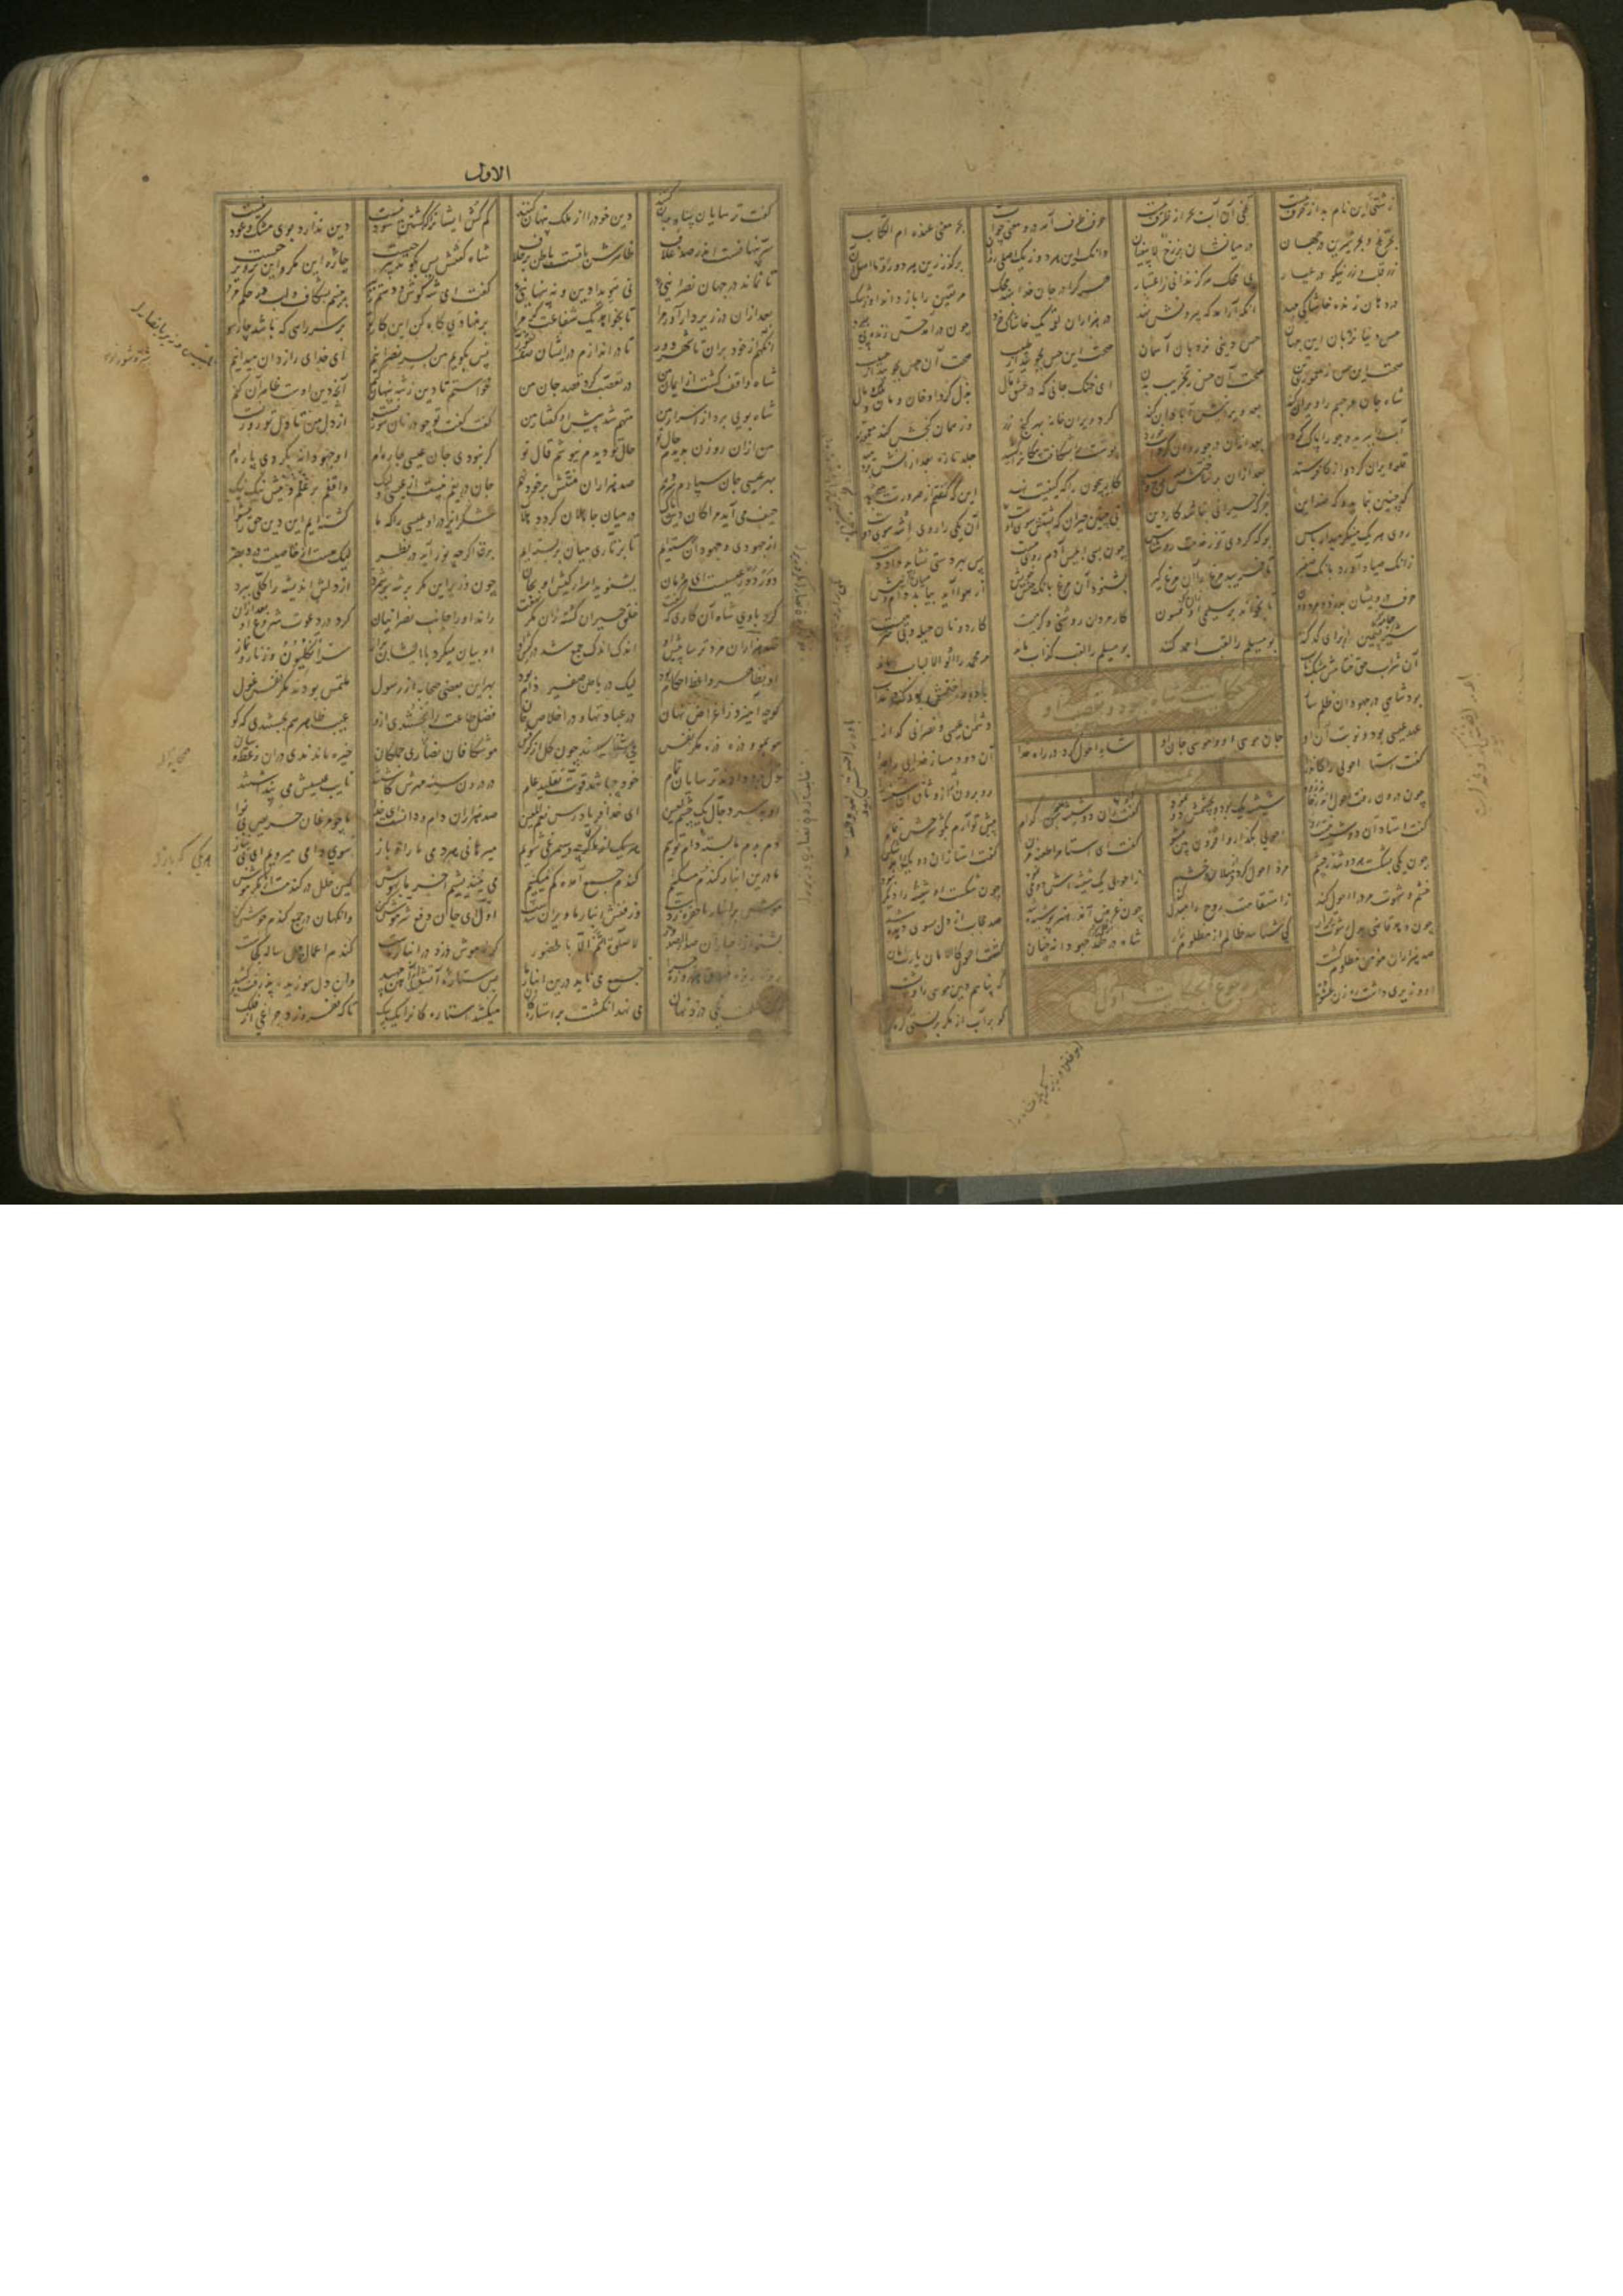 زشتی این نام بد از حرف نیست تلخی آن آب بحر از ظرف نیست حرف ظرف آمد درو معنی چو آب بحر معنی عنده ام الکتاب
بحر تلخ و بحر شیرین در جهان در میانشان برزخ لا یبغیان وانگه این هر دو ز یک اصلی روان برگذر زین هر دو رو تا اصل آن
زر قلب و زر نیکو در عیار بی محک هرگز ندانی ز اعتبار هر کرا در جان خدا بنهد محک مر یقین را باز داند او ز شک
در دهان زنده خاشاکی جهد آنگه آرامد که بیرونش نهد در هزاران لقمه یک خاشاک خرد چون درآمد حس زنده پی ببرد
حس دنیا نردبان این جهان حس دینی نردبان آسمان صحت این حس بجویید از طبیب صحت آن حس بجویید از حبیب
صحت این حس ز معموری تن صحت آن حس ز تخریب بدن ای خنک جانی که در عشق مال بذل کرد او خان و مان و ملک و مال
شاه جان مر جسم را ویران کند بعد ویرانیش آبادان کند کرد ویران خانه بهر گنج زر وز همان گنجش کند معمورتر
آب را ببرید و جو را پاک کرد بعد ازان در جو روان کرد آب خورد پوست را بشکافت پیکان را کشید جلد تازه بعد ازانش بردمید
قلعه ویران کرد و از کافر ستد بعد ازان بر ساختش صد برج و سد کار بیچون را که کیفیت نهد این که گفتم از ضرورت می جهد
که چنین بنماید و که ضد این جز که حیرانی نباشد کار دین نی چنین حیران که پشتش سوی اوست آن یکی را روی او شد سوی دوست
روی هر یک مینگر میدار پاس بوک گردی تو ز خدمت روشناس چون بسی ابلیس آدم روی هست پس بهر دستی نشاید داد دست
زانک صیاد آورد بانگ صفیر تا فریبد مرغ را آن مرغ گیر بشنود آن مرغ بانگ جنس خویش از هوا آید بیابد دام و نیش
حرف درویشان بدزدد مرد دون تا بخواند بر سلیمی زان فسون کار مردان روشنی و گرمیست کار دونان حیله و بی شرمیست
شیر پشمین از برای کد کنند بو مسیلم را لقب احمد کنند بو مسیلم را لقب کذاب ماند مر محمد را اولو الالباب ماند
آن شراب حق ختامش مشک ناب باده را ختمش بود گند و عذاب
حکایت شاه جهود و تعصب او
بود شاهی در جهودان ظلم ساز دشمن عیسی و نصرانی گداز
عهد عیسی بود و نوبت آن او جان موسی او و موسی جان او شاه احول کرد در راه خدا آن دو دمساز خدایی را جدا
گفت استاد احولی را کاندرآ رو برون آر از وثاق آن شیشه را
چون درون رفت احول اندر خانه زود شیشه یک بود و بچشمش دو نمود گفت زان دو شیشه من کدام پیش تو آرم بکو شرحش تمام
گفت استاد آن دو شیشه نیست رو احولی بگذار و افزون بین مشو گفت ای استا مرا طعنه مزن گفت استا زان دو یک را در شکن
چون یکی بشکست هر دو شد ز چشم مرد احول گردد از میلان و خشم ز احولی یک شیشه اش دو می نمود چون شکست او شیشه را دیگر نبود
خشم و شهوت مرد را احول کند ز استقامت روح را مبدل کند چون غرض آمد هنر پوشیده شد صد حجاب از دل سوی دیده شد
چون دهد قاضی بدل رشوت قرار کی شناسد ظالم از مظلوم زار شاه از حقد جهودانه چنان گشت احول کالامان یا رب امان
صد هزاران مؤمن مظلوم کشت که پناهم دین موسی را و پشت
رجوع بحکایت اول
او وزیری داشت رهزن عشوه ده کو بر آب از مکر بربستی گره
الاول
گفت ترسایان پناه جان کنند دین خود را از ملک پنهان کنند کم کش ایشانرا که کشتن سود نیست دین ندارد بوی مشک و عود نیست
سر پنهانست اندر صد غلاف ظاهرش با تست باطن بر خلاف شاه گفتش پس بگو تدبیر چیست چاره این مکر و این تزویر چیست
تا نماند در جهان نصرانیی نی هویدا دین و نه پنهانیی گفت ای شه گوش و دستم را ببر بینیم بشکاف و لب در حکم مر
بعد ازان در زیر دار آور مرا تا بخواهد یک شفاعت گر مرا بر منادی گاه کن این کار تو بر سر راهی که باشد چار سو
آنگهم از خود بران تا شهر دور تا در اندازم در ایشان صد فتور پس بگویم من بسر نصرانیم ای خدای رازدان میدانیم
شاه واقف گشت از ایمان من در تعصب کرد قصد جان من خواستم تا دین ز شه پنهان کنم آنچه دین اوست ظاهر آن کنم
شاه بویی برد از اسرار من متهم شد پیش او گفتار من گفت گفت تو چو در نان سوزنست از دل من تا دل تو روزنست
من ازان روزن بدیدم حال تو حال تو دیدم ننیوشم قال تو گر نبودی جان عیسی چاره ام او جهودانه بکردی پاره ام
بهر عیسی جان سپارم سر دهم صد هزاران منتش بر خود نهم جان دریغم نیست از عیسی ولیک واقفم بر علم دینش نیک نیک
حیف می آید مرا کان دین پاک در میان جاهلان گردد هلاک شکر ایزد را و عیسی را که ما گشته ایم این دین حق را رهنما
از جهودی و جهودان رسته ایم تا بزناری میان بربسته ایم
دور دور عیسیست ای مردمان بشنوید اسرار کیش او بجان چون وزیر این مکر بر شه بر شمرد از دلش اندیشه را کلی ببرد
کرد باوی شاه آن کاری که گفت خلق حیران گشته زان مکر نهفت راند او را جانب نصرانیان کرد در دعوت شروع او بعد ازان
صد هزاران مرد ترسا پیش او اندک اندک جمع شد در کوی او او بیان میکرد با ایشان براز سر انگلیون و زنار و نماز
او بظاهر واعظ احکام بود لیک در باطن صفیر و دام بود بهر این بعضی صحابه از رسول ملتمس بودند مکر نفس غول
کو چه آمیزد ز اغراض نهان در عبادتها و در اخلاص جان فضل طاعت را نجستندی ازو عیب ظاهر هم بجستندی که کو
مو بمو و ذره ذره مکر نفس می شناسیدند چون گل از کرفس موشکافان نصاری جملگان خیره ماندندی دران وعظ و بیان
دل بدو دادند ترسایان تمام خود چه باشد قوت تقلید عام در درون سینه مهرش کاشتند نایب عیسیش می پنداشتند
او بسر دجال یک چشم لعین ای خدا فریاد رس نعم المعین صد هزاران دام و دانست ای خدا ما چو مرغان حریص بی نوا
دم بدم ما بسته دام نویم هر یک ار باز و سیمرغی شویم میرهانی هر دمی ما را و باز سوی دامی میرویم ای بی نیاز
ما درین انبار گندم میکنیم گندم جمع آمده گم میکنیم می نیندیشیم آخر ما بهوش کین خلل در گندمست از مکر موش
موش تا انبار ما حفره زدست وز فنش انبار ما ویران شدست اول ای جان دفع شر موش کن وانگهان در جمع گندم جوش کن
بشنو از اخبار آن صدر الصدور لا صلوة تم الا بالحضور گر نه موش دزد در انبار ماست گندم اعمال چل ساله کجاست
ریزه ریزه صدق هر روزه چرا جمع می ناید درین انبار ما بس ستاره آتش از آهن جهید وان دل سوزیده پذرفت و کشید
لیک در ظلمت یکی دزد نهان می نهد انگشت بر استارگان میکشد استارگانرا یک بیک تا که نفروزد چراغی از فلک